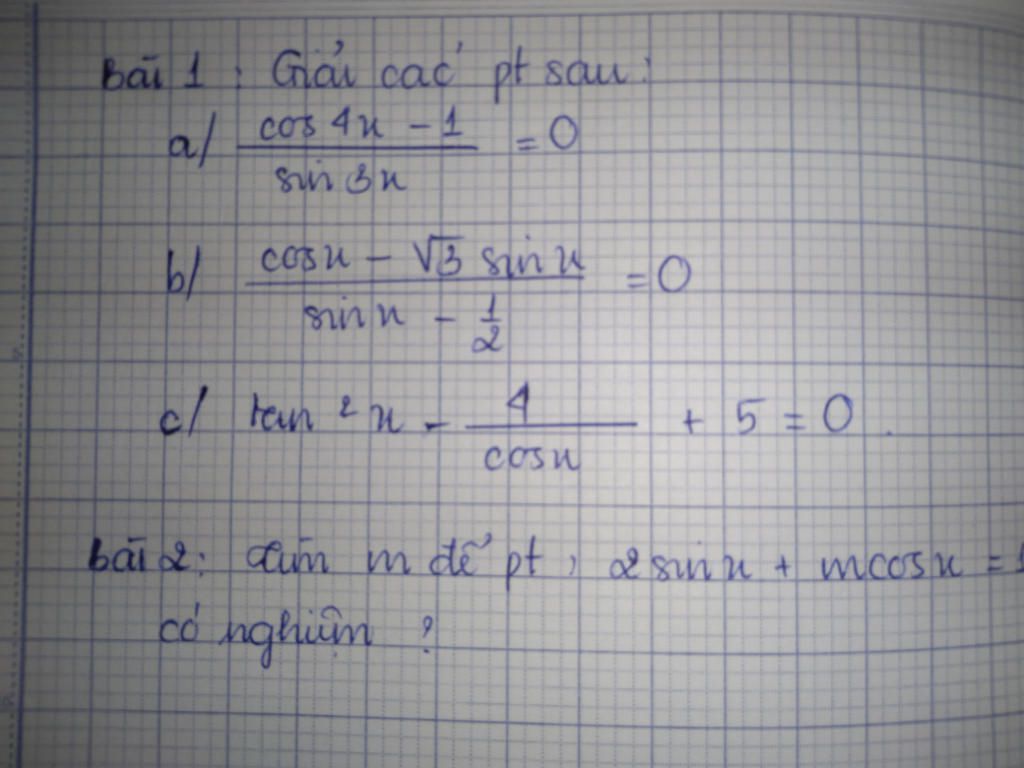 Bài 1 : Giải các pt sau :
a/ \frac{cos 4x - 1}{sin 3x} = 0
b/ \frac{cosx - \sqrt{3} sin x}{sin x - \frac{1}{2}} = 0
c/ tan ²x - \frac{4}{cosx} + 5 = 0 .
Bài 2 : Tìm m để pt : 2 sin x + mcosx = 1
có nghiệm ?